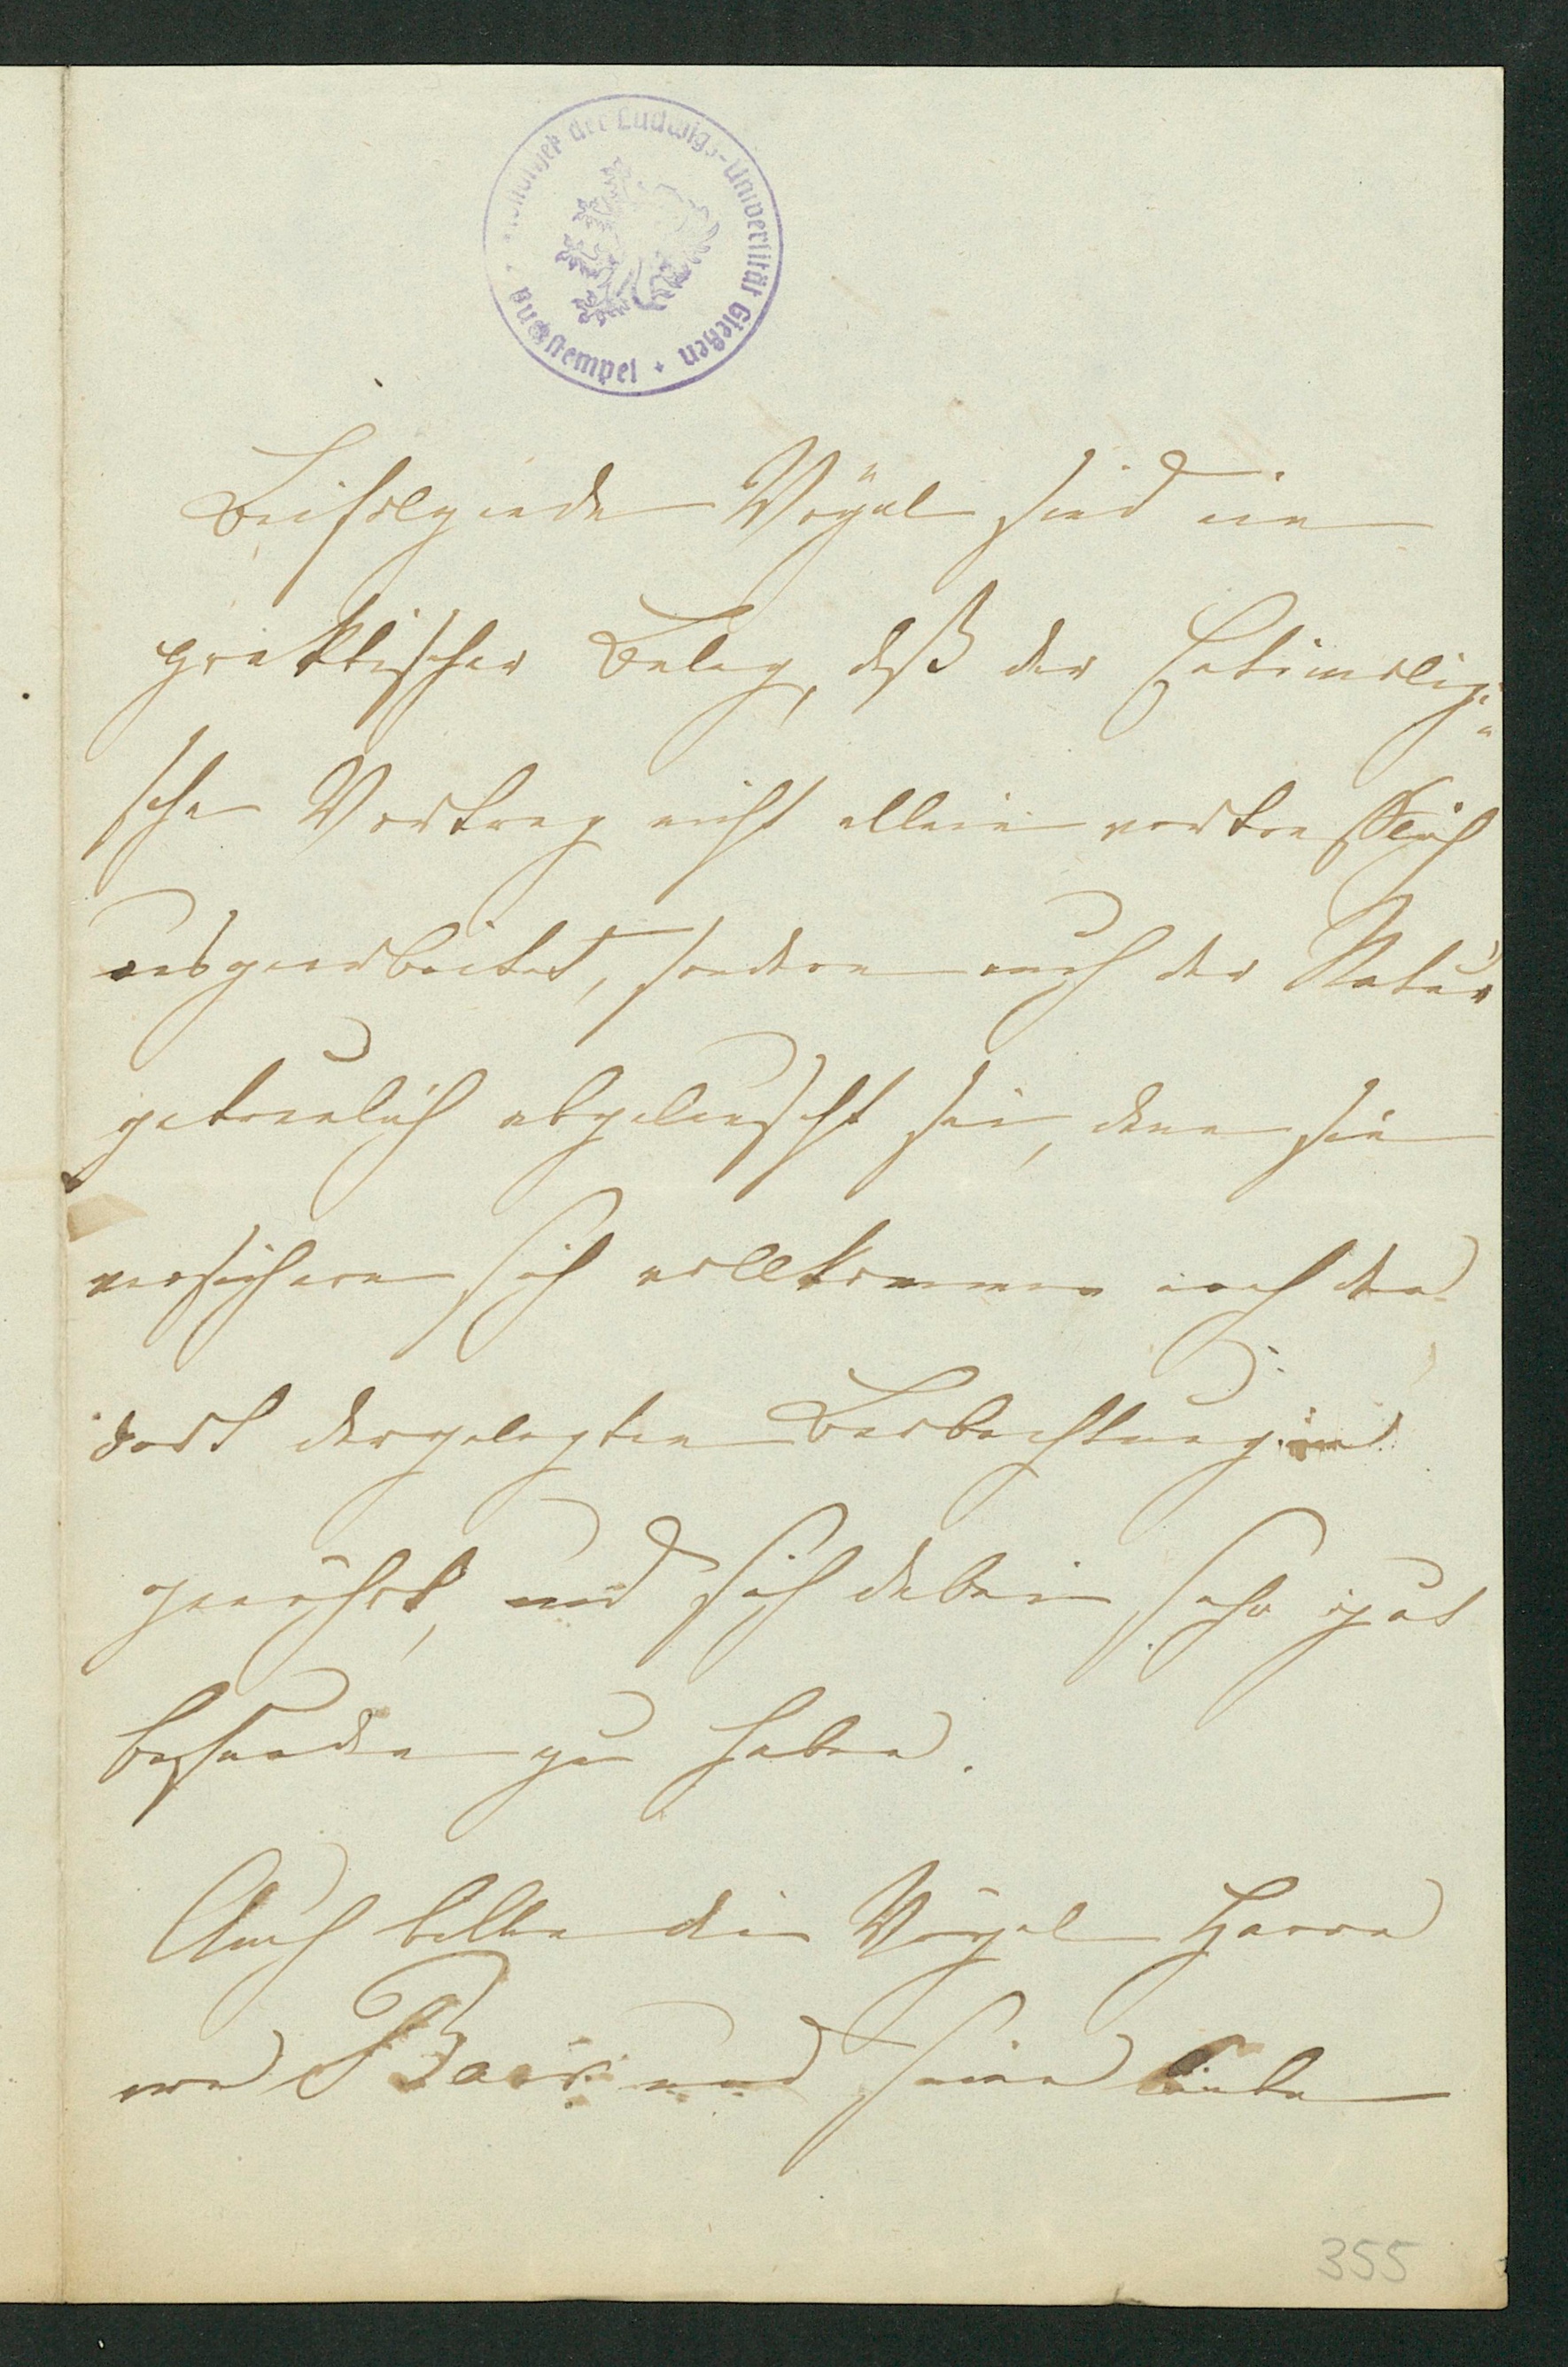 Bibliothek der Ludwigs-Universität Gießen
Buchstempel
Beifolgende Vögel sind ein
praktischer Beleg, daß der
sche Vortrag nicht allein vortrefflich
ausgearbeitet, sondern auch der Natur
getreulich abgelauscht sei, denn sie
versichern sich vollkommen nach den
dort dargelegten Beobachtungen
genährt, und sich dabei sehr gut
befunden zu haben.
Auch bitten die Vögel Herrn
von Baer und seine
355